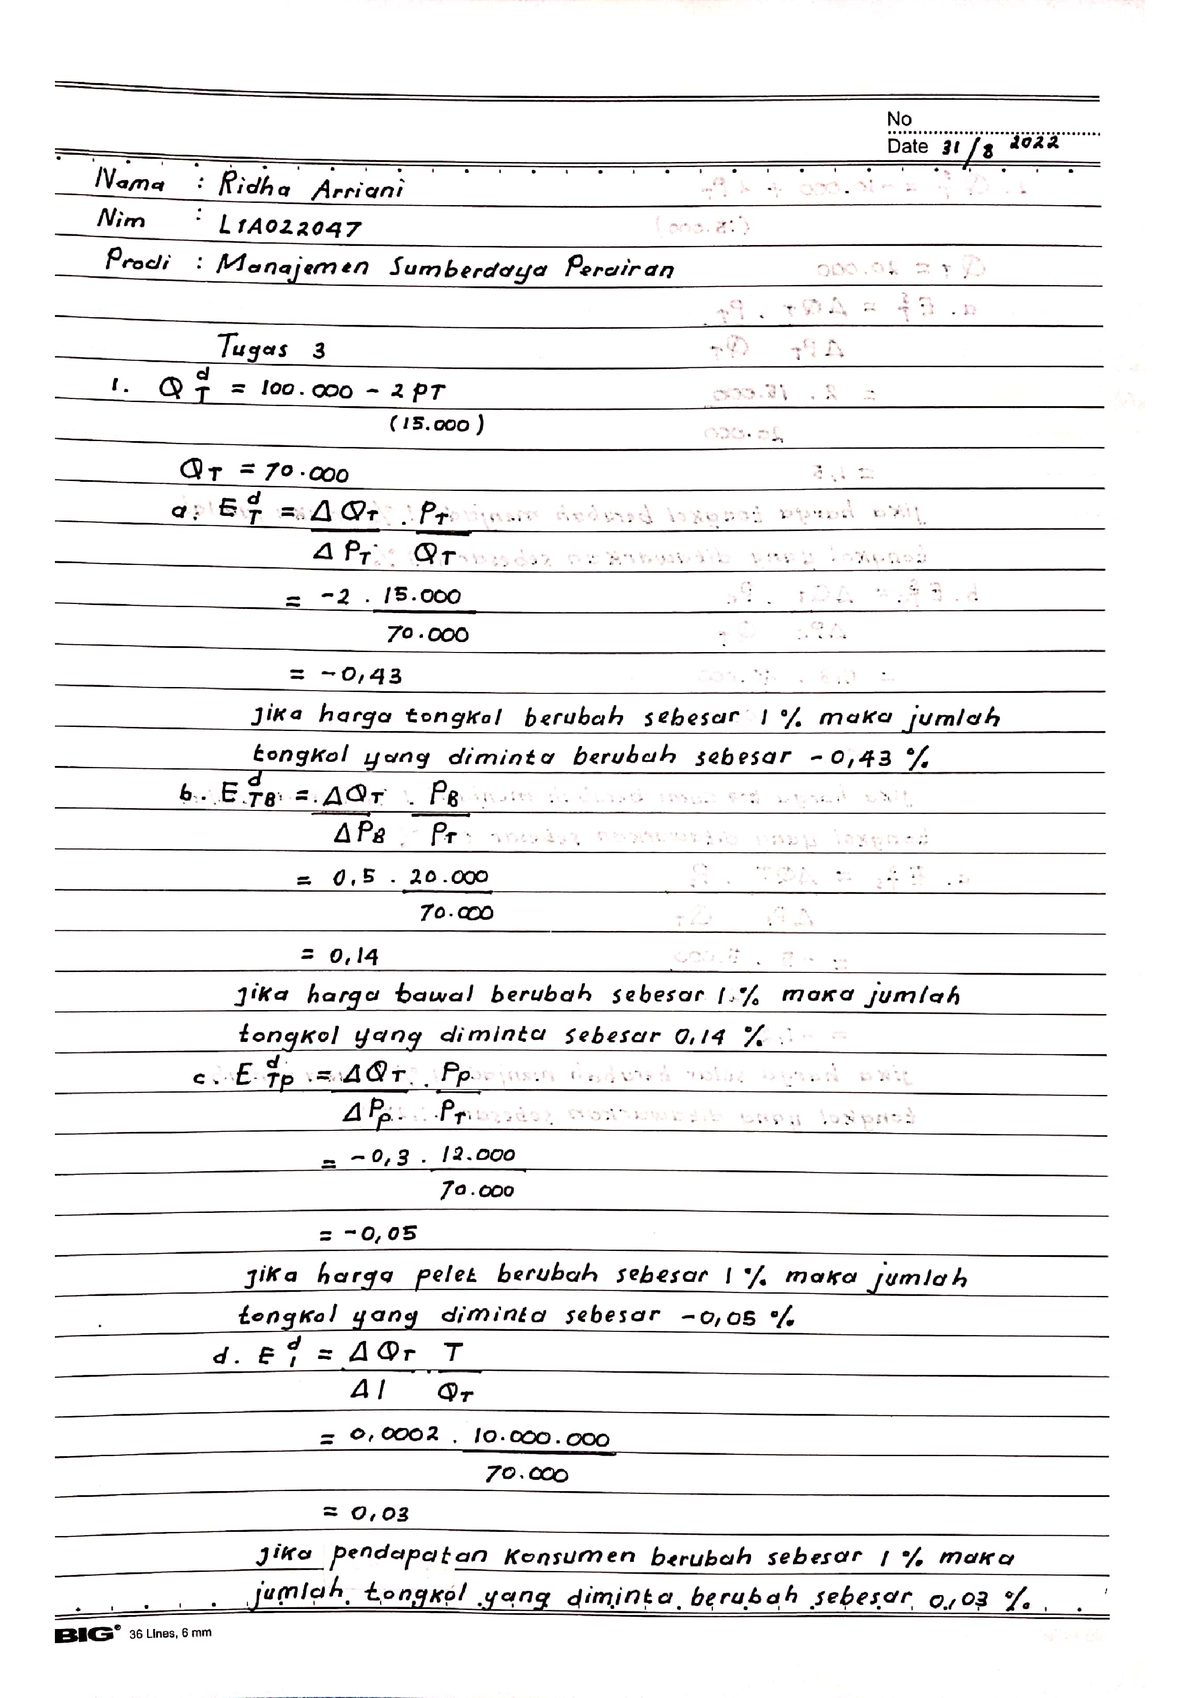 No
Date 31/8 2022
Nama : Ridha Arriani
Nim : L1A022047
Prodi : Manajemen Sumberdaya Perairan
Tugas 3
1. Q d T = 100.000 - 2 PT
(15.000)
QT = 70.000
a. E d T = Δ QT . PT
Δ PT QT
= -2 . 15.000
70.000
= -0,43
Jika harga tongkol berubah sebesar 1 % maka jumlah
tongkol yang diminta berubah sebesar -0,43 %
b. E d TB = ΔQT . PB
ΔPB PT
= 0,5 . 20.000
70.000
= 0,14
Jika harga bawal berubah sebesar 1 % maka jumlah
tongkol yang diminta sebesar 0,14 %
c. E d TP = ΔQT . Pp
ΔPp PT
= -0,3 . 12.000
70.000
= -0,05
Jika harga pelet berubah sebesar 1 % maka jumlah
tongkol yang diminta sebesar -0,05 %
d. E d I = ΔQT T
ΔI . QT
= 0,0002 . 10.000.000
70.000
= 0,03
Jika pendapatan Konsumen berubah sebesar 1 % maka
jumlah tongkol yang diminta berubah sebesar 0,03 %
BIG® 36 Lines, 6 mm